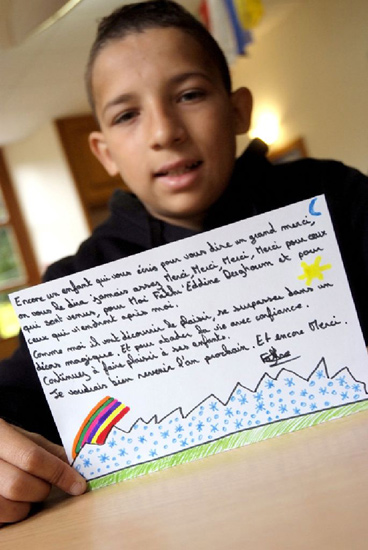 Encore un enfant qui vous écris pour vous dire un grand merci,
on vous le dire jamais assez Merci, Merci, Merci, Merci pour ceux
qui sont venus, pour Moi Fath' Eddine Derghoum et pour
ceux qui viendront après moi.
Comme moi il vont découvrir le plaisir, se surpasser dans un
décors magique. Et pour aborder la vie avec confiance.
Continuez à faire plaisir à ses enfants.
Je voudrais bien revenir l'an prochain. Et encore Merci.